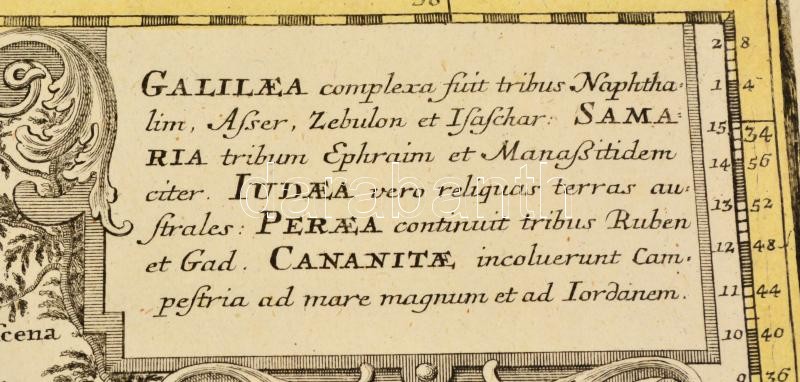 GALILÆA complexa fuit tribus Naphtha-
lim, Asser, Zebulon et Isaschar: SAMA-
RIA tribum Ephraim et Manaßitidem
citer. IUDÆA vero reliquas terras au-
strales: PERÆA continuit tribus Ruben
et Gad. CANANITÆ incoluerunt Cam-
pestria ad mare magnum et ad Iordanem.
scena
2 8
1 4
15 34
14 56
13 52
12 48
11 44
10 40
9 36
darabanth